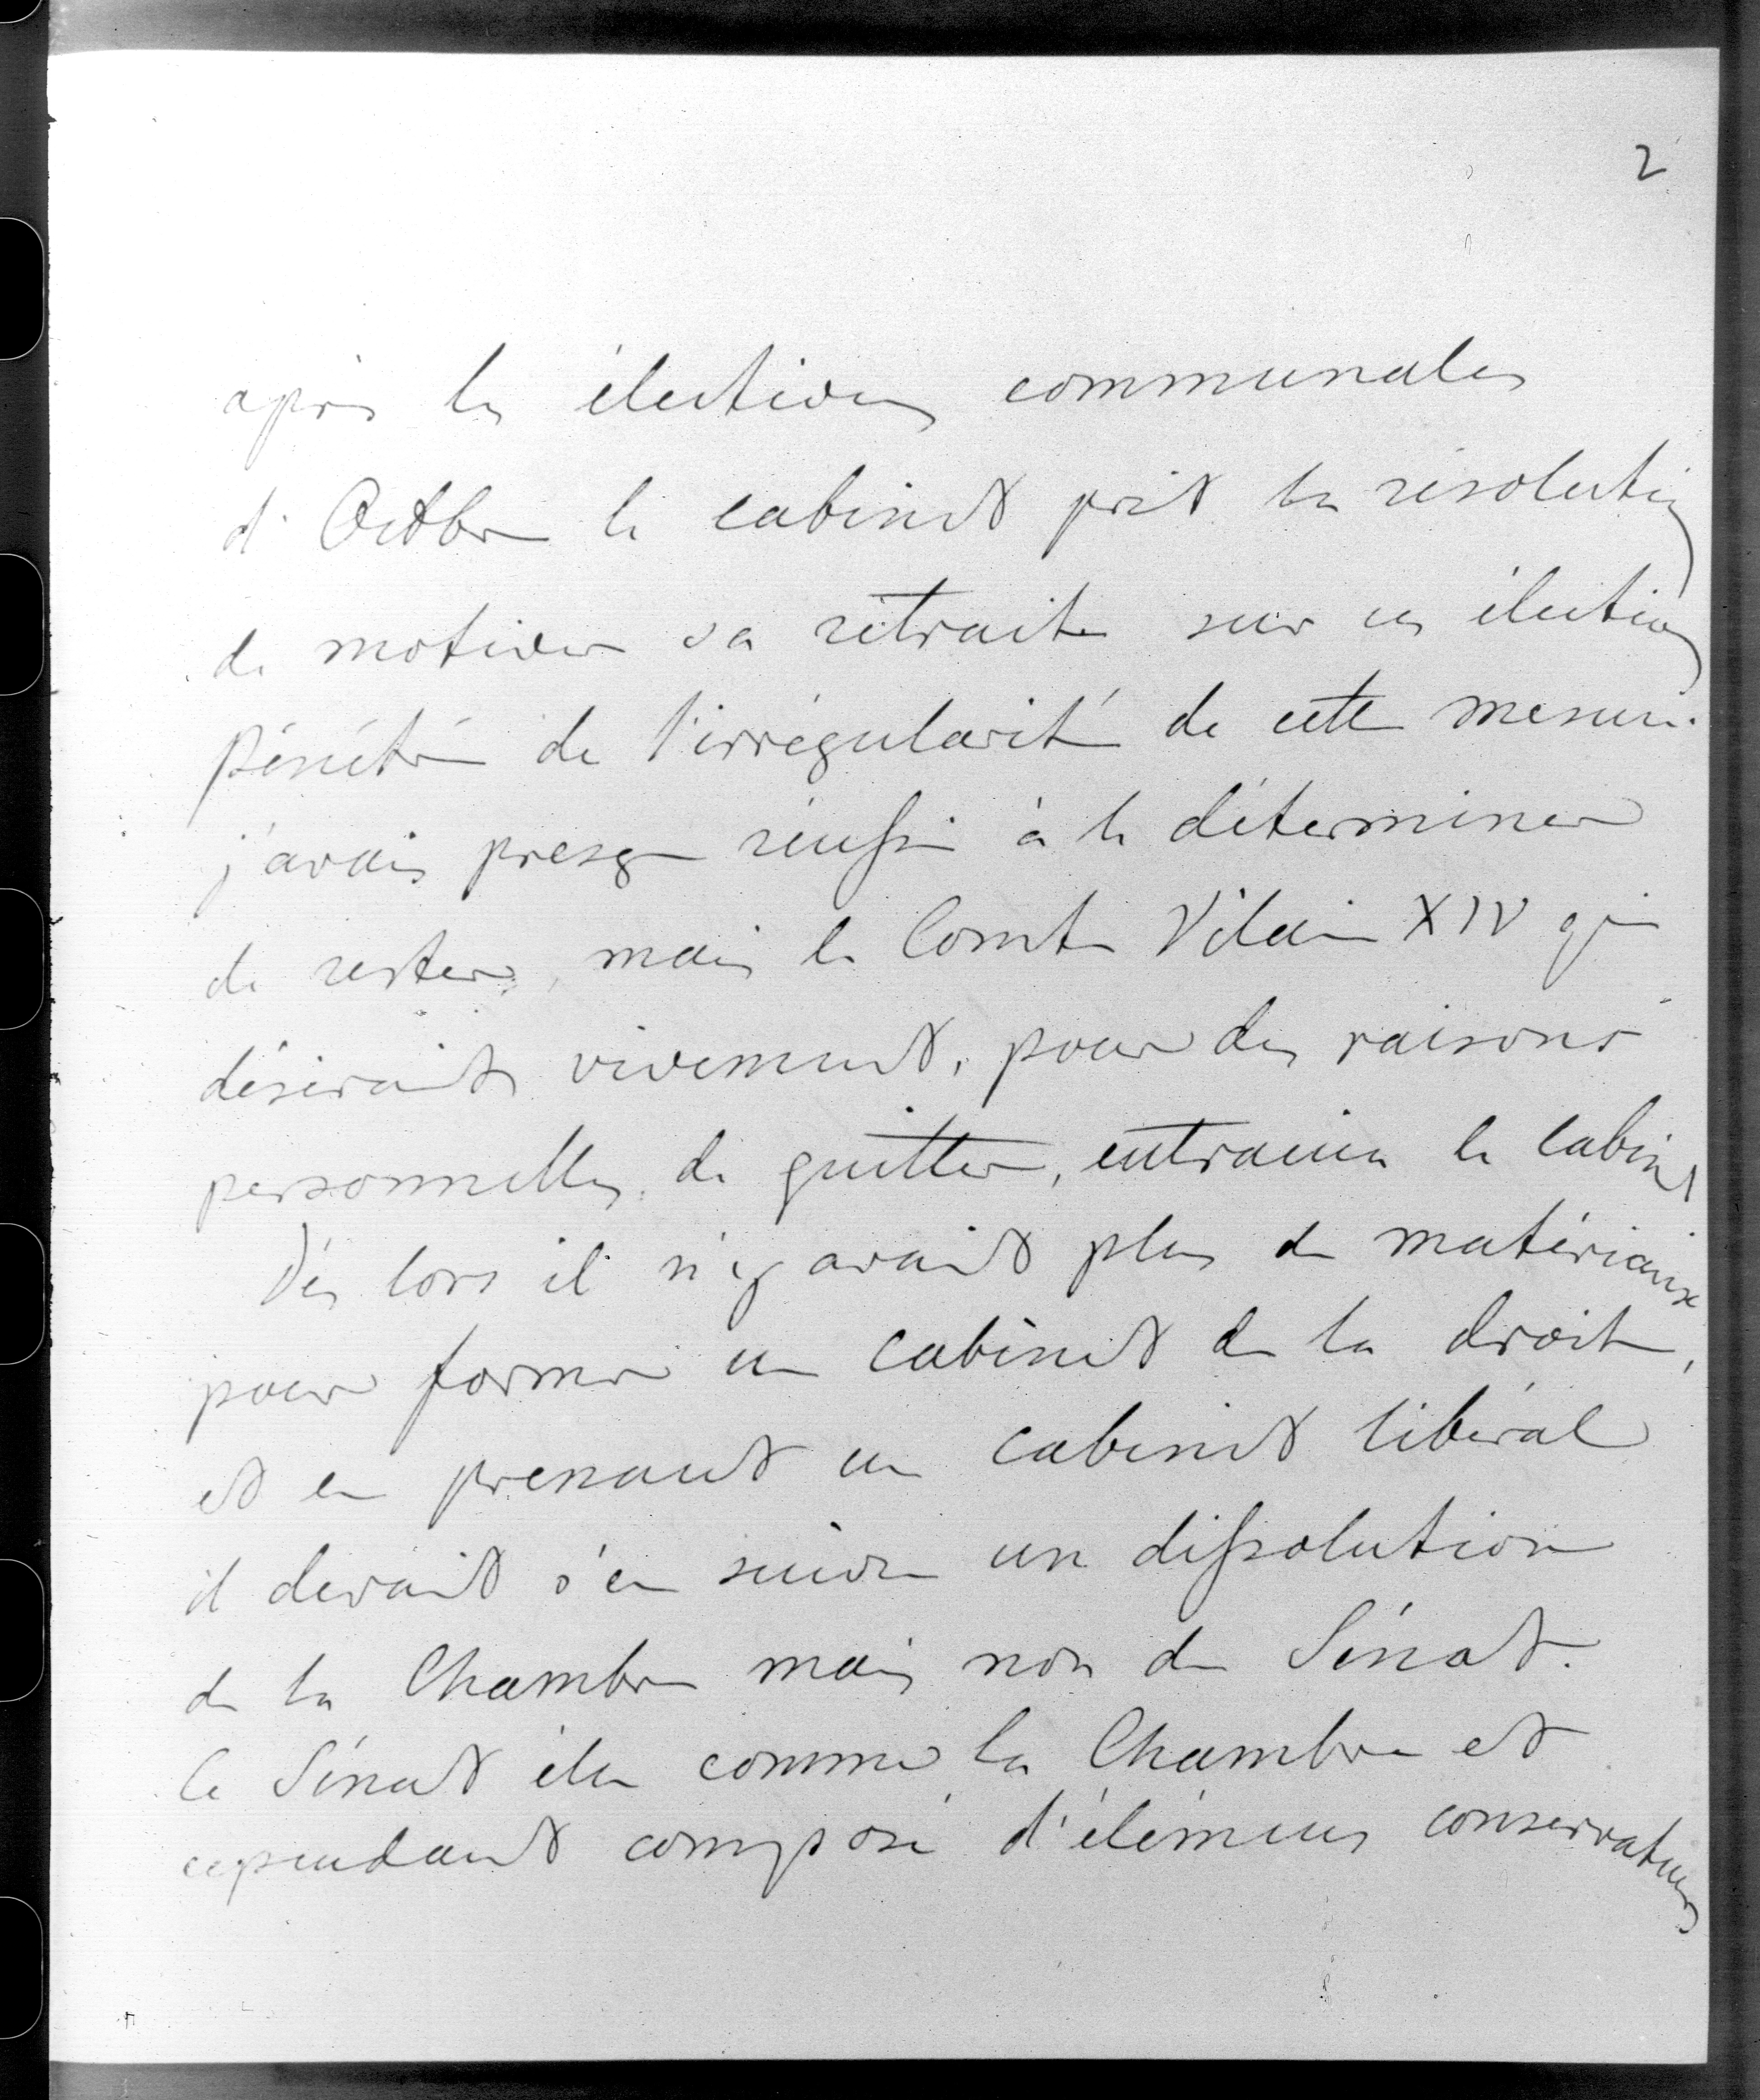 2
après les élections communales
d'Octbre le cabinet prit la résolution
de motiver sa retraite sur ces élections
Pénétré de l'irrégularité de cette mesure.
j'avais presque réussi à le déterminer
de rester, mais le Comte Vilain XIV qui
désirait vivement, pour des raisons
personnelles, de quitter, entraina le cabinet
Dès lors il n'y avait plus de matériaux
pour former un cabinet de la droite,
et en prenant un cabinet libéral
il devait s'en suivre une dissolution
de la Chambre mais non du Sénat.
Le Sénat élu comme la Chambre et
cependant composé d'élémens conservateurs